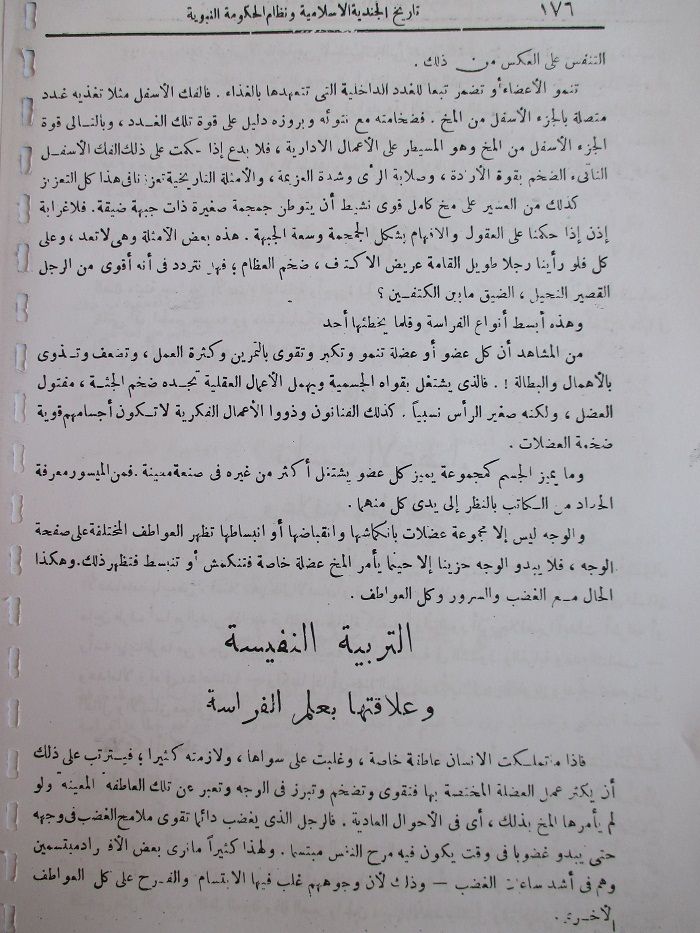 ١٧٦ تاريخ الجندية الاسلامية ونظام الحكومة النبوية
التنفس على العكس من ذلك .
تنمو الأعضاء أو تضمر تبعا للغدد الداخلية التى تتعهدها بالغذاء . فالفك الأسفل مثلا تغذيه غدد
متصلة بالجزء الأسفل من المخ . فضخامته مع نتوئه وبروزه دليل على قوة تلك الغدد ، وبالتالى قوة
الجزء الأسفل من المخ وهو المسيطر على الأعمال الادارية ، فلا بدع إذا حكمت على ذلك الفك الأسفل
الناتىء الضخم بقوة الأرادة ، وصلابة الرأى وشدة العزيمة ، والأمثلة التاريخية تعززنا فى هذا كل التعزيز
كذلك من العسير على مخ كامل قوى نشيط أن يتوطن جمجمة صغيرة ذات جبهة ضيقة . فلا غرابة
إذن إذا حكمنا على العقول والافهام بشكل الجمجمة وسعة الجبهة . هذه بعض الأمثلة وهى لا تعد ، وعلى
كل فلو رأينا رجلا طويل القامة عريض الاكتاف ، ضخم العظام ؛ فهل نتردد فى أنه أقوى من الرجل
القصير النحيل ، الضيق مابين الكتفين ؟
وهذه أبسط أنواع الفراسة وقلما يخطئها أحد
من المشاهد أن كل عضو أو عضلة تنمو وتكبر وتقوى بالتمرين وكثرة العمل ، وتضعف وتذوى
بالأهمال والبطالة ! . فالذى يشتغل بقواه الجسمية ويهمل الأعمال العقلية تجده ضخم الجثة ، مفتول
العضل ، ولكنه صغير الرأس نسبياً . كذلك الفنانون وذووا الأعمال الفكرية لا تكون أجسامهم قوية
ضخمة العضلات .
وما يميز الجسم كمجموعة يميز كل عضو يشتغل أكثر من غيره فى صنعة معينة . فمن الميسور معرفة
الحداد من الكاتب بالنظر إلى يدى كل منهما .
والوجه ليس إلا مجموعة عضلات بانكماشها وانقباضها أو انبساطها تظهر العواطف المختلفة على صفحة
الوجه ، فلا يبدو الوجه حزينا إلا حينما يأمر المخ عضلة خاصة فتنكمش أو تنبسط فتظهر ذلك . وهكذا
الحال مع الغضب والسرور وكل العواطف .
التربية النفيسة
وعلاقتها بعلم الفراسة
فاذا ماتملكت الانسان عاطفة خاصة ، وغلبت على سواها ، ولازمته كثيرا ؛ فيترتب على ذلك
أن يكثر عمل العضلة المختصة بها فتقوى وتضخم وتبرز فى الوجه وتعبر عن تلك العاطفه " المعينه " ولو
لم يأمرها المخ بذلك ، أى فى الأحوال العادية . فالرجل الذى يغضب دائما تقوى ملامح الغضب فى وجهه
حتى يبدو غضوبا فى وقت يكون فيه مرح النفس مبتسما . ولهذا كثيراً مانرى بعض الأفراد مبتسمين
وهم فى أشد ساعات الغضب — وذلك لأن وجوههم غلب فيها الابتسام والفرح على كل العواطف
الأخرى .